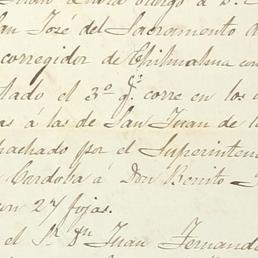 an José del Sacramento d
corregidor de Chihuahua con
lado el 3º q.e corre en los
as á las de San Juan de l
hachado por el Superinten
Cordoba á Don Benito
on 27 fojas.
el Sr. Dn Juan Fernand